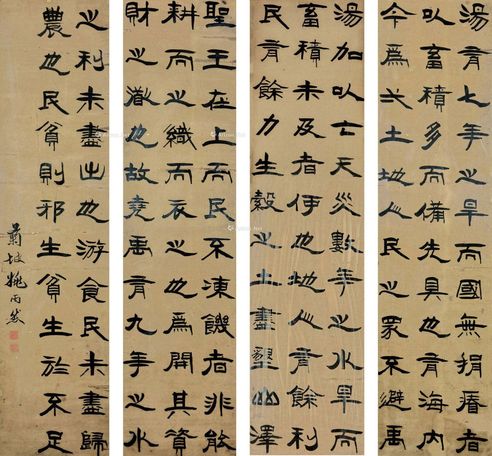 聖王在上而民不凍饑者非能
耕而之織而衣之也為開其資
財之道也故堯禹有九年之水
湯有七年之旱而國無捐瘠者
以畜積多而備先具也有海內
今為弌土地人民之眾不避禹
湯加以亡天災數年之水旱而
畜積未及者伊也地人有餘利
民有餘力生穀之土盡墾山澤
之利未盡出也游食民未盡歸
農也民貧則邪生貧生於不足
坡姚丙然